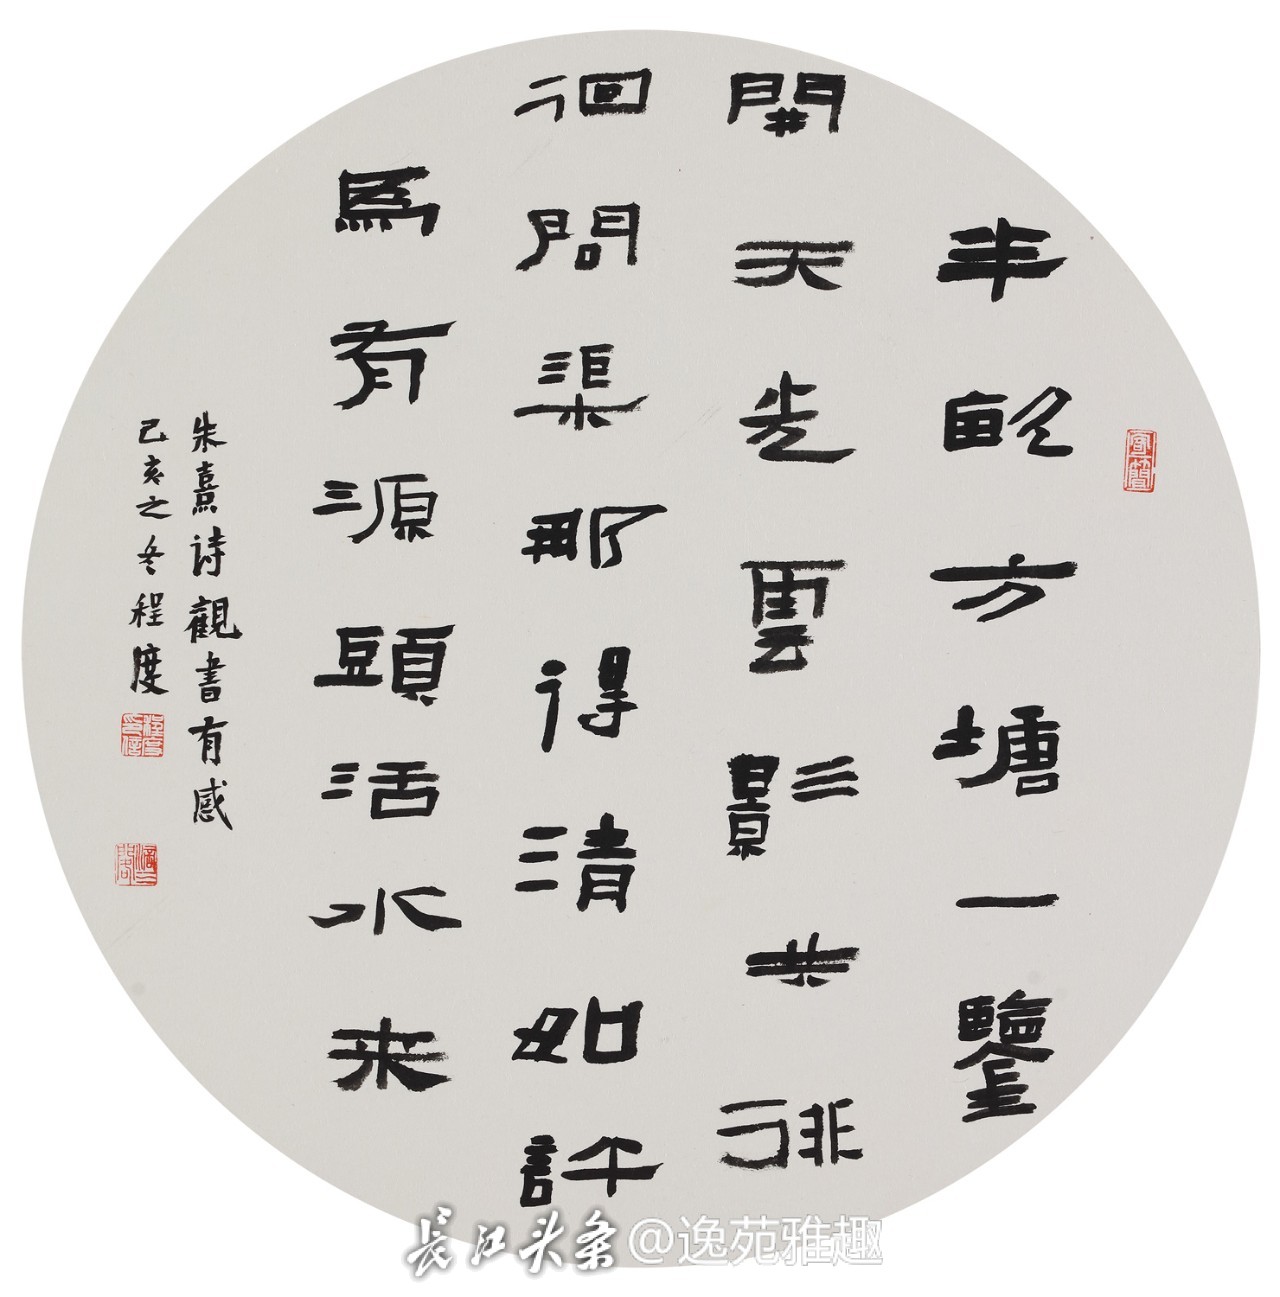 半畝方塘一鑒
開天光雲影共徘
徊問渠那得清如許
為有源頭活水来
朱熹诗觀書有感
己亥之冬程度
程度印信
长江头条@逸苑雅趣